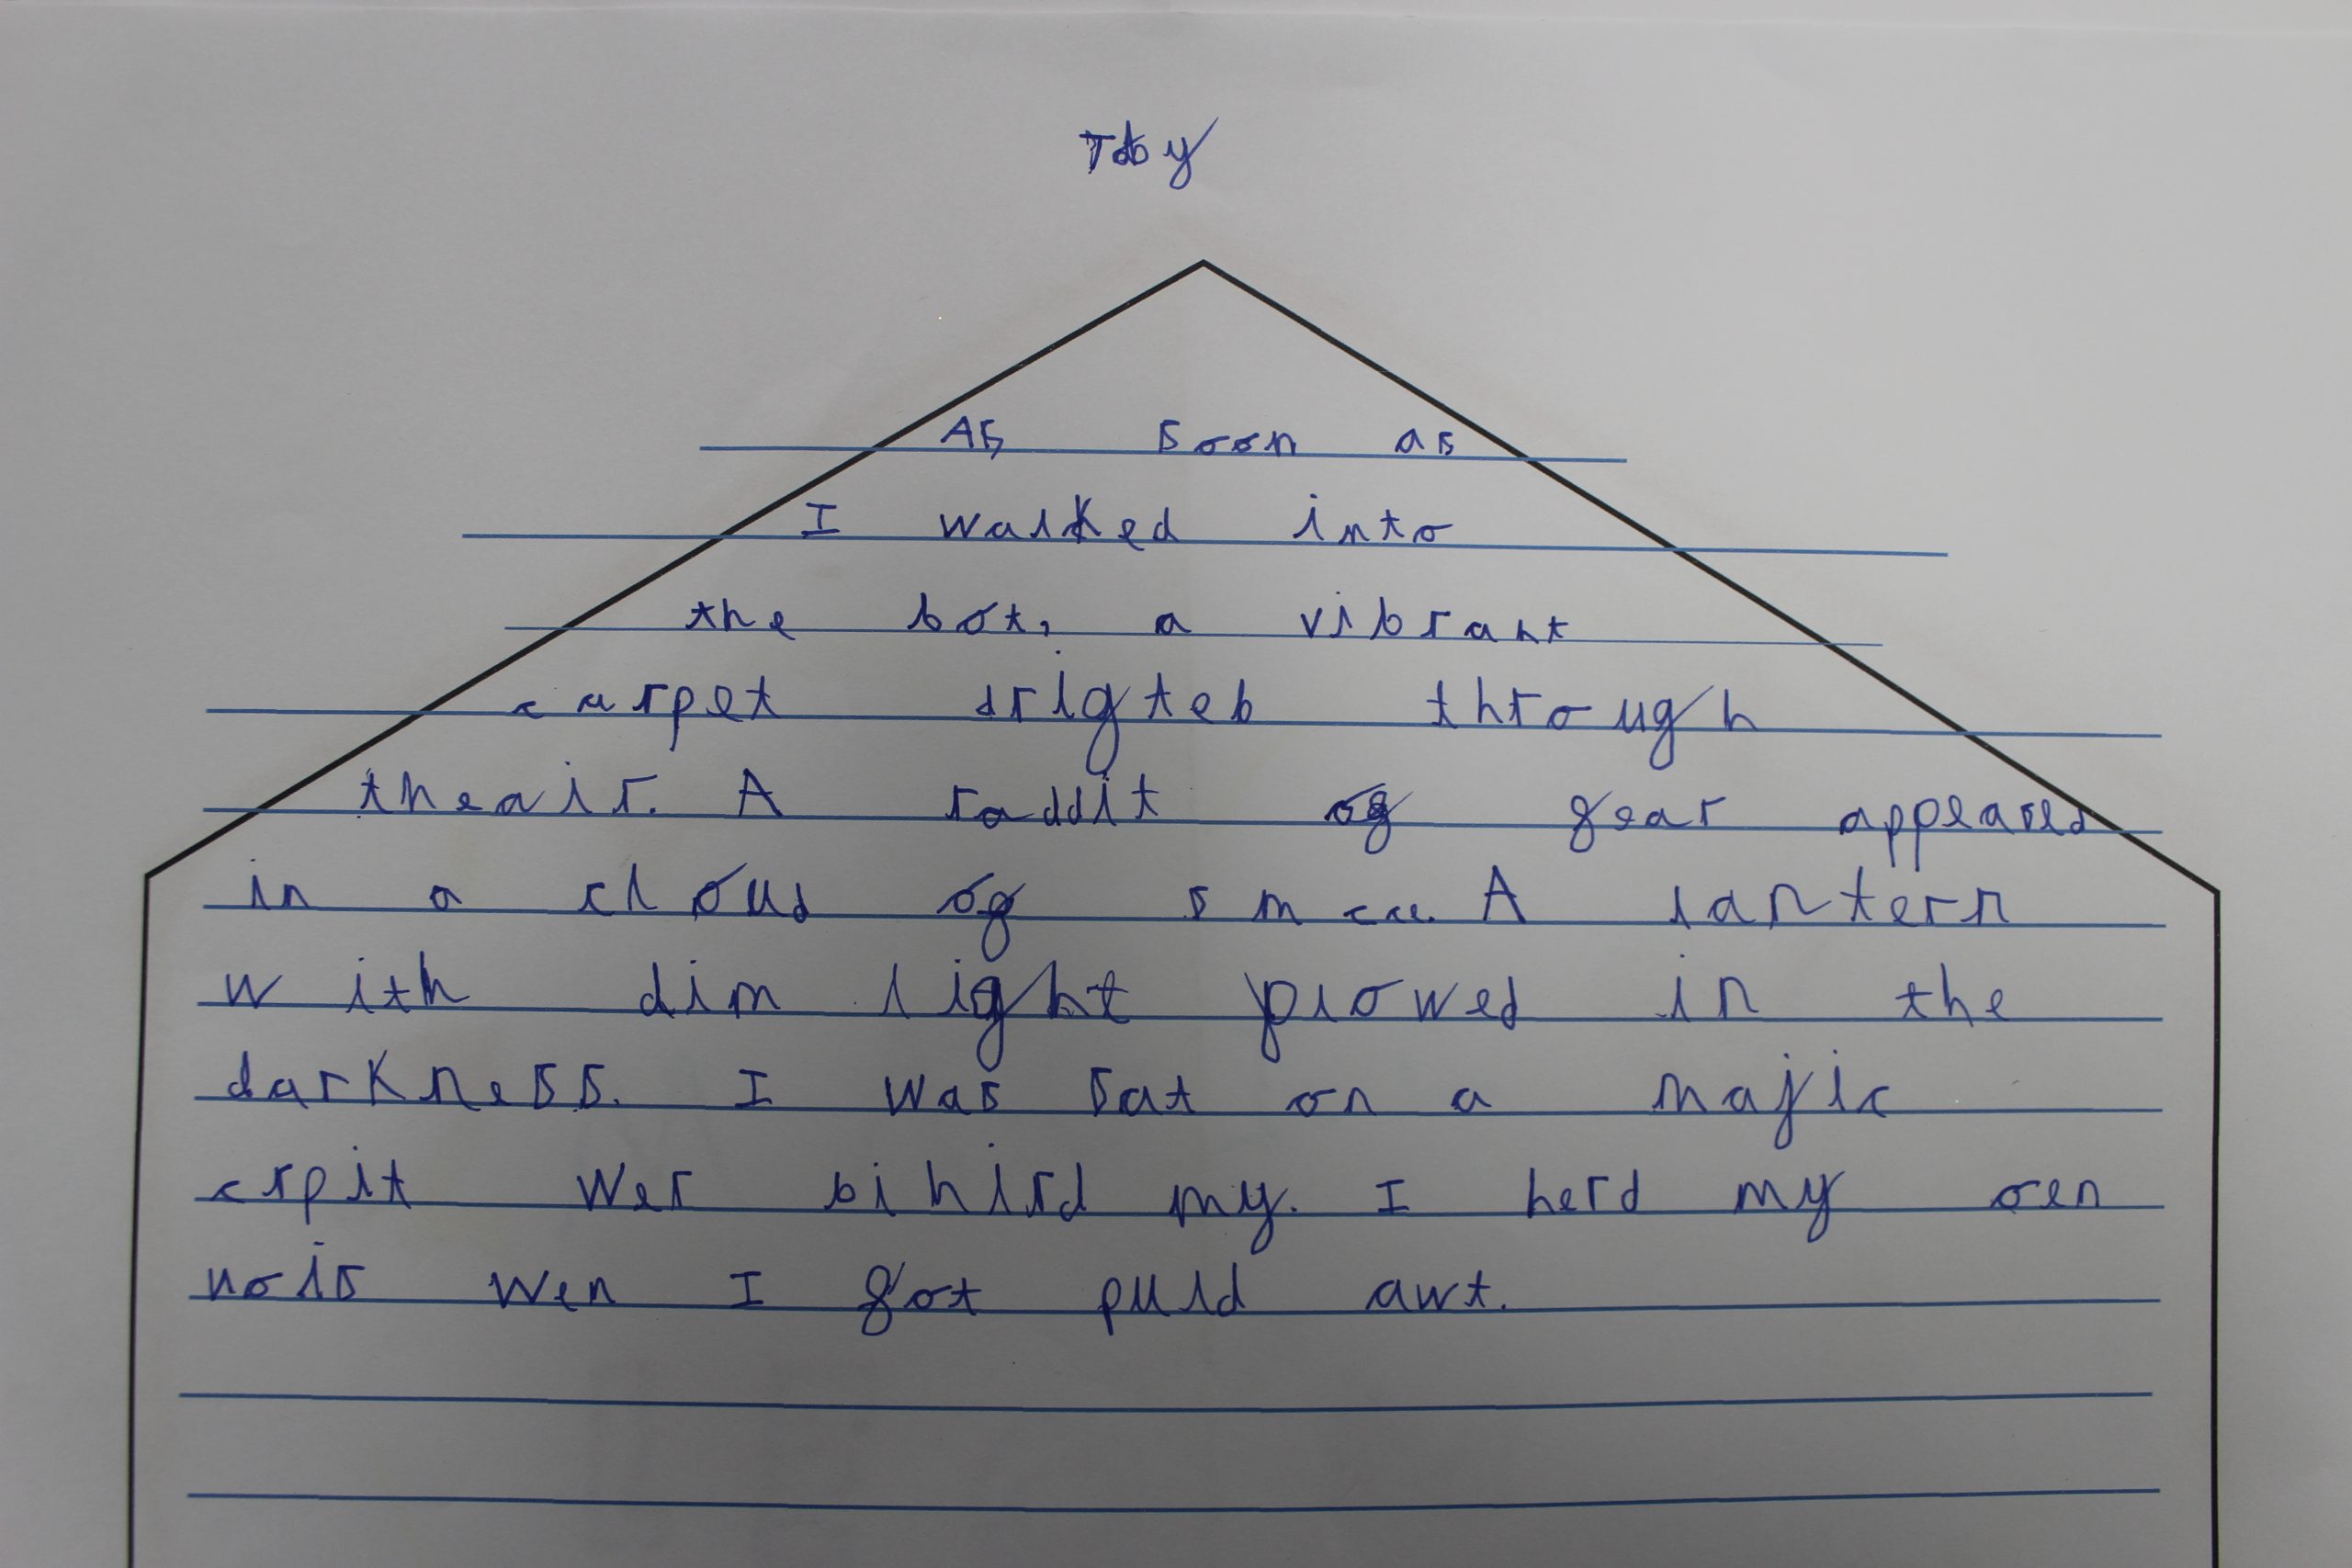 Toby
As soon as
I walked into
the bot, a vibrant
carpet drigteb through
theair. A raddit og gear appeared
in a cloud og A lantern
with dim light plowed in the
darkness. I was sat on a majic
crpit wer bihind my. I herd my oen
nois wen I got puld awt.